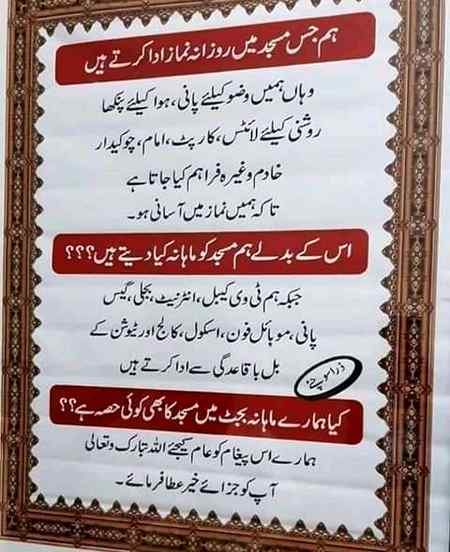 ہم جس مسجد میں روزانہ نماز ادا کرتے ہیں
وہاں ہمیں وضو کیلئے پانی، ہوا کیلئے پنکھا
روشنی کیلئے لائٹس، کارپٹ، امام، چوکیدار
خادم وغیرہ فراہم کیا جاتا ہے
تاکہ ہمیں نماز میں آسانی ہو۔
اس کے بدلے ہم مسجد کو ماہانہ کیا دیتے ہیں؟؟؟
جبکہ ہم ٹی وی کیبل، انٹرنیٹ، بجلی، گیس
پانی، موبائل فون، اسکول، کالج اور ٹیوشن کے
بل باقاعدگی سے ادا کرتے ہیں
ذرا سوچیے!
کیا ہمارے ماہانہ بجٹ میں مسجد کا بھی کوئی حصہ ہے؟؟
ہمارے اس پیغام کو عام کیجئے اللہ تبارک وتعالی
آپ کو جزائے خیر عطا فرمائے۔